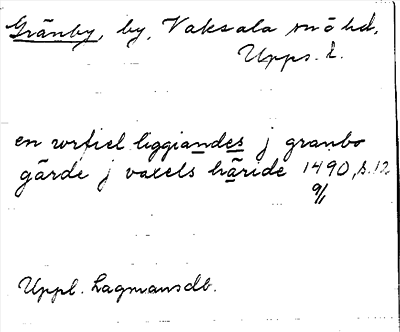 Gränby, by, Vaksala sn ö hd,
Upps. l.
en urfiel liggiandes j granbo
gärde j vaxels häride 1490, s. 12
9/1
Uppl. Lagmansdb.